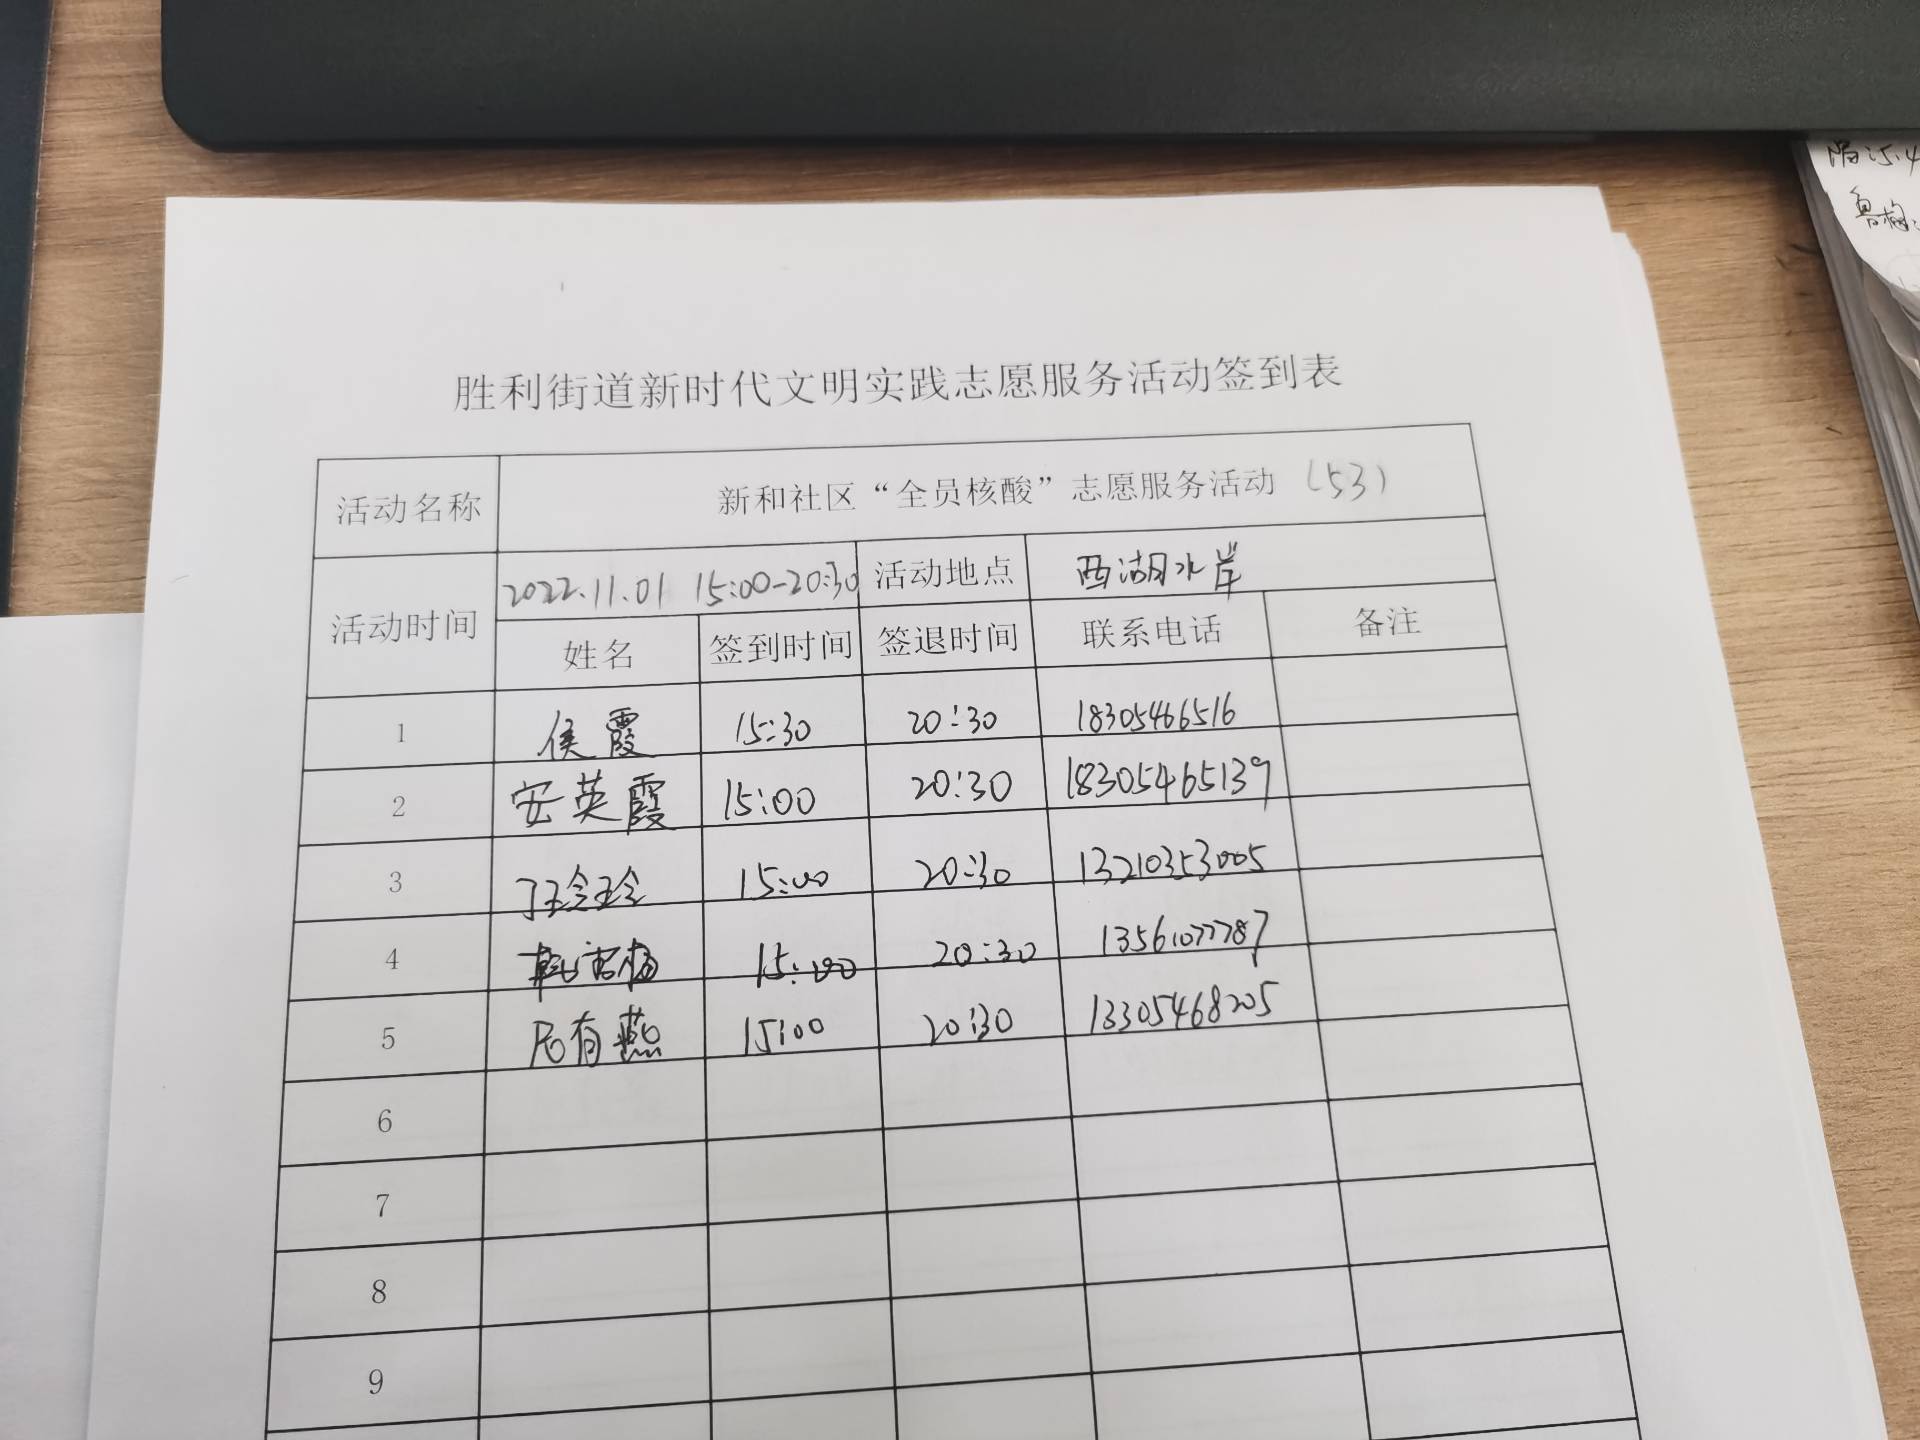 胜利街道新时代文明实践志愿服务活动签到表
活动名称 新和社区“全员核酸”志愿服务活动 (53)
活动时间 2022.11.01 15:00-20:30 活动地点 西湖水岸
姓名 签到时间 签退时间 联系电话 备注
1 侯霞 15:30 20:30 18305466516
2 安英霞 15:00 20:30 18305465139
3 丁玲玲 15:00 20:30 13210353005
4 15:00 20:30 13561077787
5 有燕 15:00 20:30 13305468205
6
7
8
9